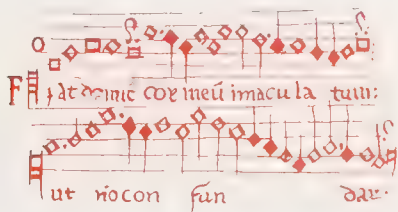 Fiat domine cor meũ imacula tum:
ut nõ con fun dar.